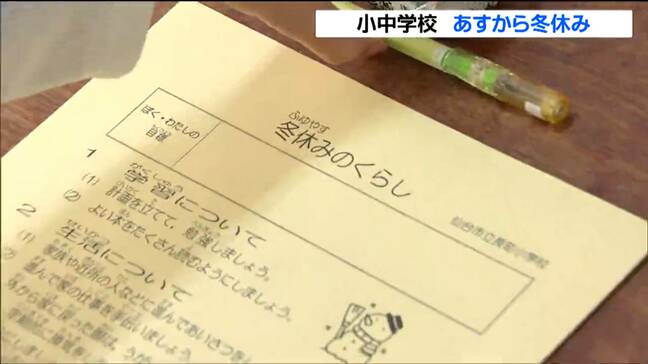 小中学校 あすから冬休み
ふゆやす
冬休みのくらし
ぼく・わたしの
仙台市立長町小学校
1 学習について
(1) 計画を立てて、勉強しましょう。
(2) よい本をたくさん読むようにしましょう。
2 生活について
(1) 家族や近所の人などに進んであいさつを
進んで家の仕事を手伝いましょう。